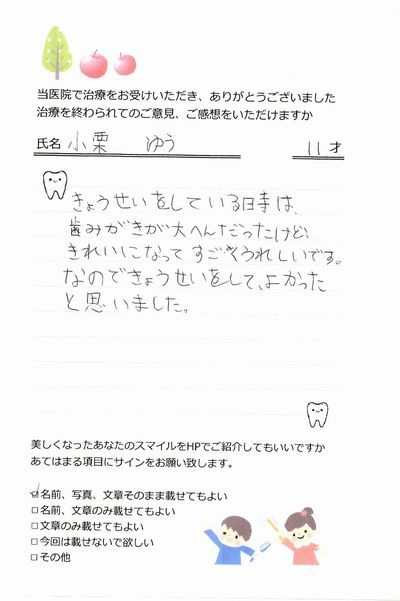 当医院で治療をお受けいただき、ありがとうございました
治療を終わられてのご意見、ご感想をいただけますか
氏名 小栗 ゆう 11才
きょうせいをしている時は、
歯みがきが大へんだったけど、
きれいになってすごくうれしいです。
なのできょうせいをして、よかった
と思いました。
美しくなったあなたのスマイルをHPでご紹介してもいいですか
あてはまる項目にサインをお願い致します。
☑名前、写真、文章そのまま載せてもよい
□名前、文章のみ載せてもよい
□文章のみ載せてもよい
□今回は載せないで欲しい
□その他